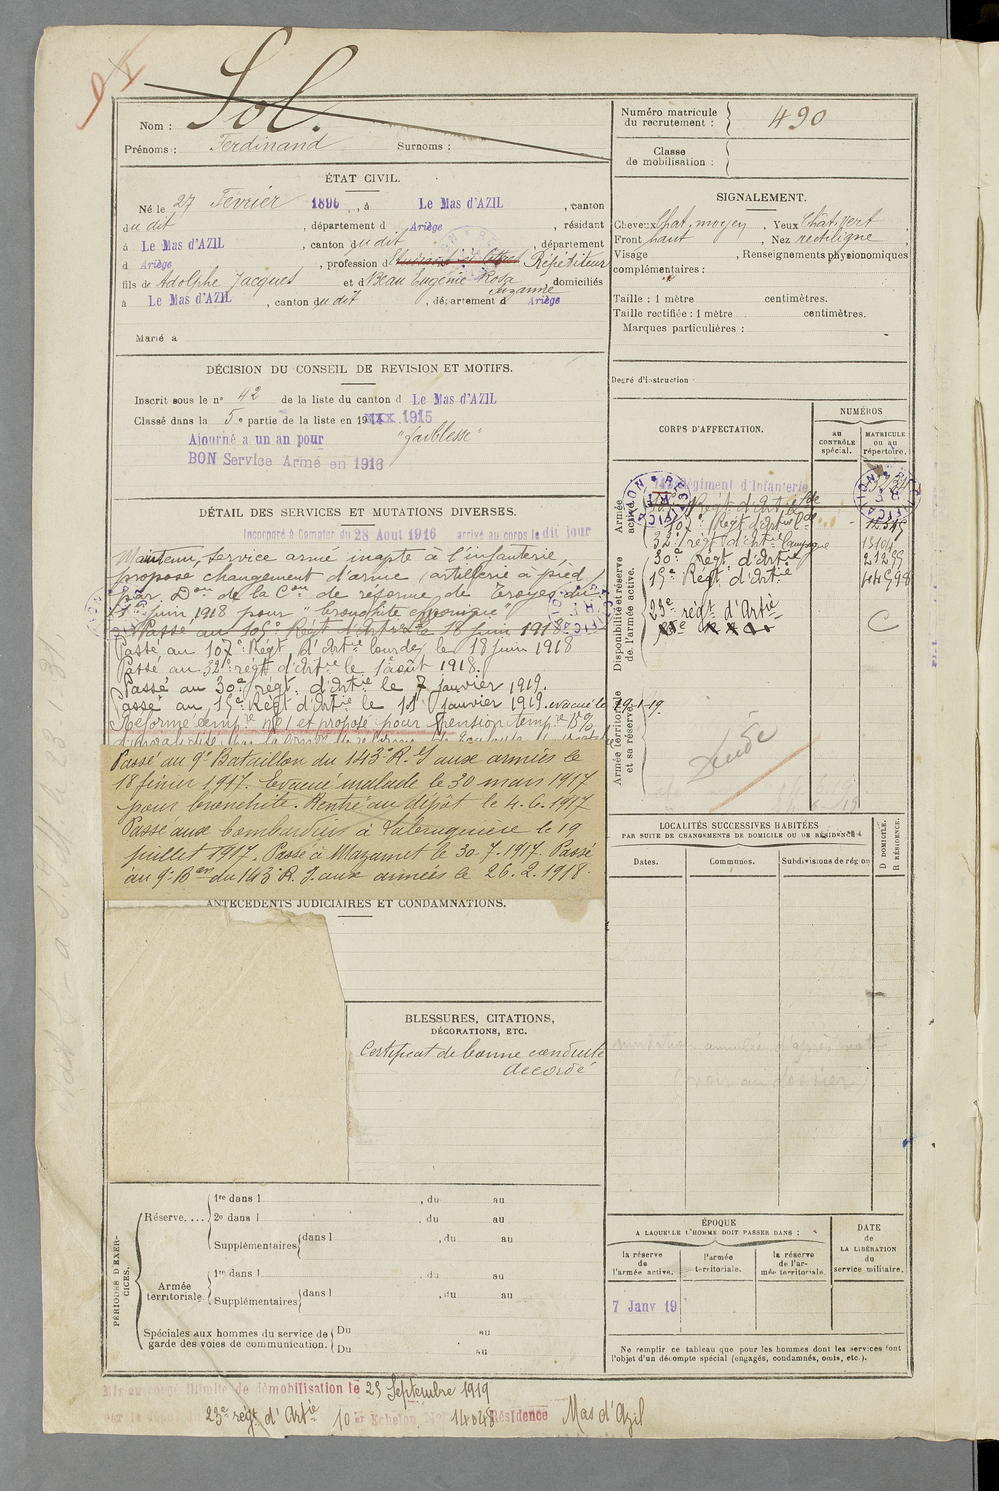 Nom : Sol.
Prénoms : Ferdinand Surnoms :
ÉTAT CIVIL.
Né le 27 Février 1896, à Le Mas d'AZIL, canton
du dit, département d Ariège, résidant
à Le Mas d'AZIL, canton du dit, département
d Ariège, profession d Répétiteur
fils de Adolphe Jacques et d Beau Eugénie Rosa Suzanne, domiciliés
à Le Mas d'AZIL, canton du dit, département d Ariège
Marié à
DÉCISION DU CONSEIL DE REVISION ET MOTIFS.
Inscrit sous le n° 42 de la liste du canton d Le Mas d'AZIL
Classé dans la 5e partie de la liste en 1915
Ajourné a un an pour "faiblesse"
BON Service Armé en 1916
DÉTAIL DES SERVICES ET MUTATIONS DIVERSES.
Incorporé à Compter du 28 Aout 1916 arrivé au corps le dit jour
Maintenu, service armé inapte à l'infanterie,
propose changement d'arme, artillerie à pied,
par Don de la Con de réforme de Troyes du
1er juin 1918 pour "bronchite chronique"
Passé au 105e Régt d'Artie le 18 juin 1918
Passé au 107e Régt d'Artie lourde, le 18 juin 1918
Passé au 32e régt d'Artie le 1er août 1918.
Passé au 30e régt d'Artie le 7 janvier 1919.
Passé au 15e Régt d'Artie le 11 janvier 1919. evacué le 29-1-19.
Réformé tempre n°1 et proposé pour pension tempre 15%
Passé au 9e Bataillon du 143e R. I aux armées le
18 février 1917. Evacué malade le 30 mars 1917
pour bronchite. Rentré au dépôt le 4.6.1917
Passé aux bombardiers à Labruguière le 19
juillet 1917. Passé à Mazamet le 30.7.1917. Passé
au 9e Bon du 143e R. I. aux armées le 26.2.1918.
ANTÉCÉDENTS JUDICIAIRES ET CONDAMNATIONS.
BLESSURES, CITATIONS,
DÉCORATIONS, ETC.
Certificat de bonne conduite
Accordé
PÉRIODES D'EXERCICES.
Réserve....
1re dans l , du au
2e dans l , du au
Supplémentaires dans l , du au
Armée territoriale.
1re dans l , du au
Supplémentaires dans l , du au
Spéciales aux hommes du service de garde des voies de communication.
Du au
Du au
Mis en congé illimité de démobilisation le 23 Septembre 1919
23e régt d'Artie 10er Echelon N° 14048 Résidence Mas d'Azil
Numéro matricule du recrutement : 490
Classe de mobilisation :
SIGNALEMENT.
Cheveux Chat. moyen, Yeux Chât. vert
Front haut, Nez rectiligne
Visage , Renseignements physionomiques
complémentaires :
Taille : 1 mètre centimètres.
Taille rectifiée : 1 mètre centimètres.
Marques particulières :
Degré d'instruction
CORPS D'AFFECTATION.
NUMÉROS
au CONTRÔLE spécial.
MATRICULE ou au répertoire.
Disponibilité et réserve de l'armée active.
Armée active.
Régiment d'Infanterie
107e Régt d'Artie
32e régt d'Artie Campagne
30e Régt d'Artie 21299
15e Régt d'Artie
23e régt d'Artie
C
Armée territoriale et sa réserve.
LOCALITÉS SUCCESSIVES HABITÉES
PAR SUITE DE CHANGEMENTS DE DOMICILE OU DE RÉSIDENCE
Dates.
Communes.
Subdivisions de région
D DOMICILE.
R RÉSIDENCE.
mutation annulée d'après note
(voir au dossier)
ÉPOQUE
A LAQUELLE L'HOMME DOIT PASSER DANS :
la réserve de l'armée active.
l'armée territoriale.
la réserve de l'armée territoriale.
DATE de LA LIBÉRATION du service militaire.
7 Janv 19
Ne remplir ce tableau que pour les hommes dont les services font
l'objet d'un décompte spécial (engagés, condamnés, omis, etc.).